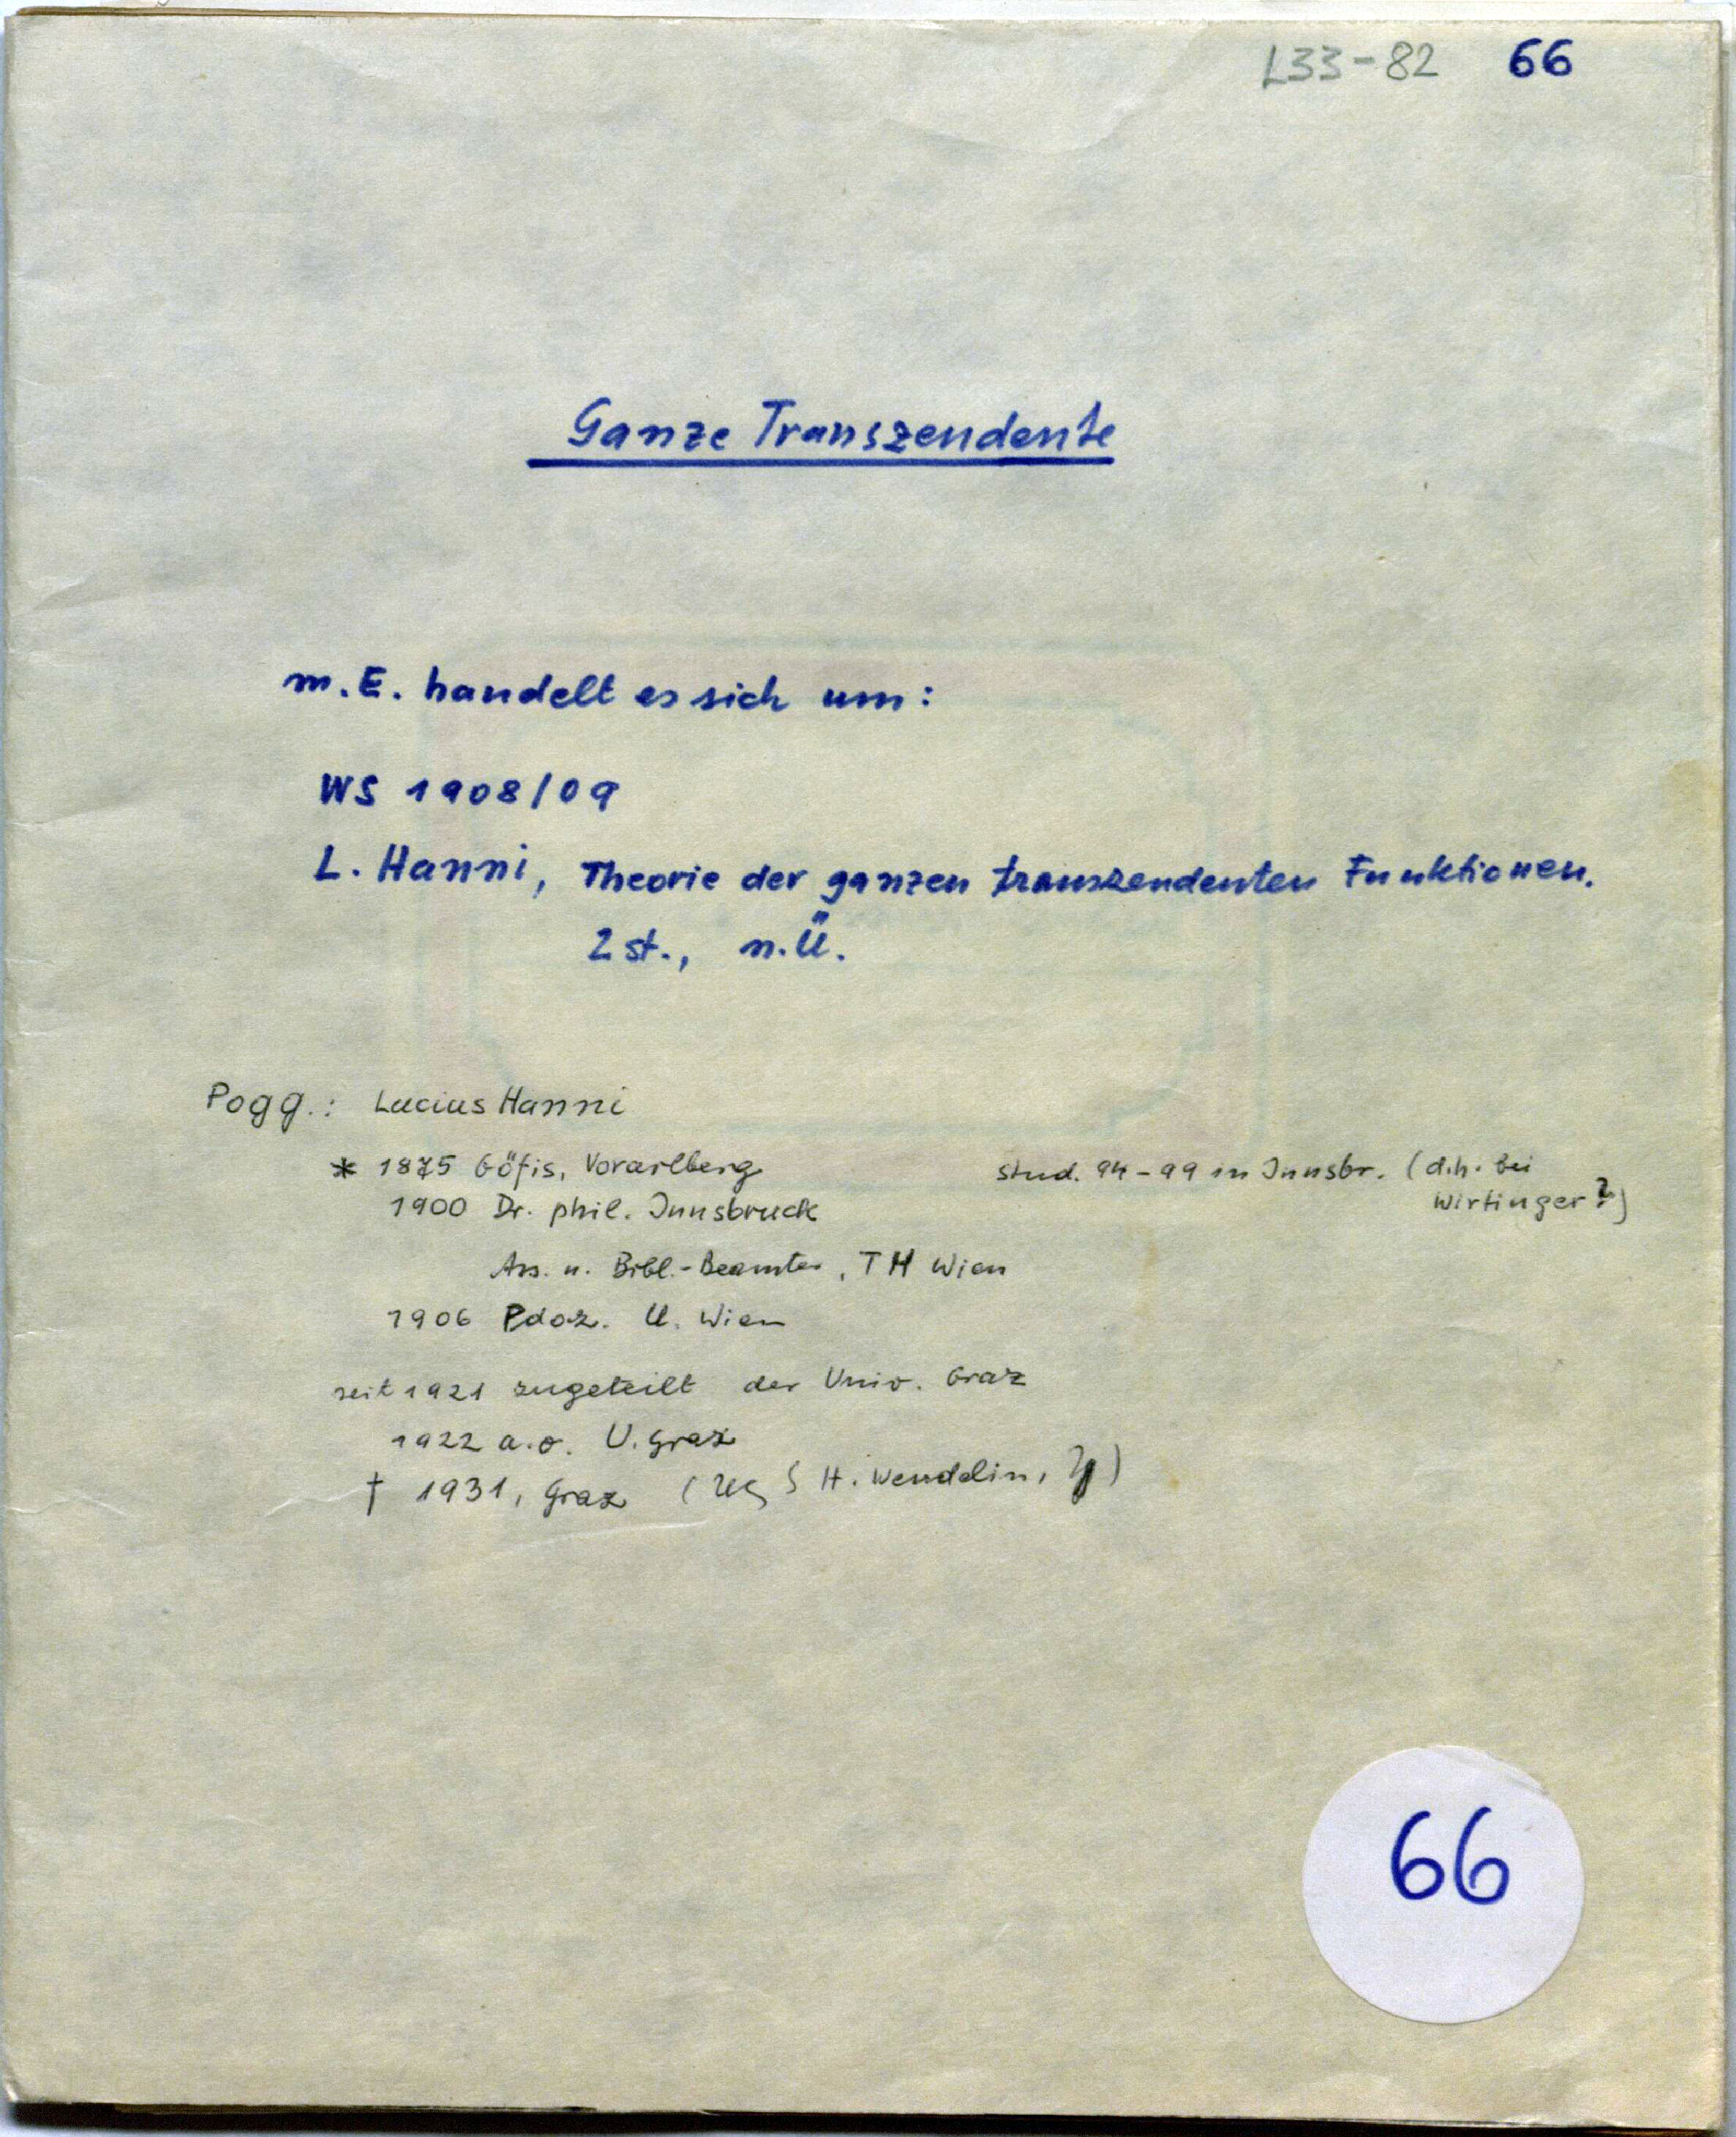 L33-82 66
Ganze Transzendente
m.E. handelt es sich um:
WS 1908/09
L. Hanni, Theorie der ganzen transzendenten Funktionen.
2 st., n.Ü.
Pogg.: Lucius Hanni
* 1875 Göfis, Vorarlberg stud. 94-99 in Innsbr. (d.h. bei
1900 Dr. phil. Innsbruck Wirtinger?)
Ass. u. Bibl.-Beamter, TH Wien
1906 Pdoz. U. Wien
seit 1921 zugeteilt der Univ. Graz
1922 a.o. U. Graz
† 1931, Graz ( H. Wendelin, )
66